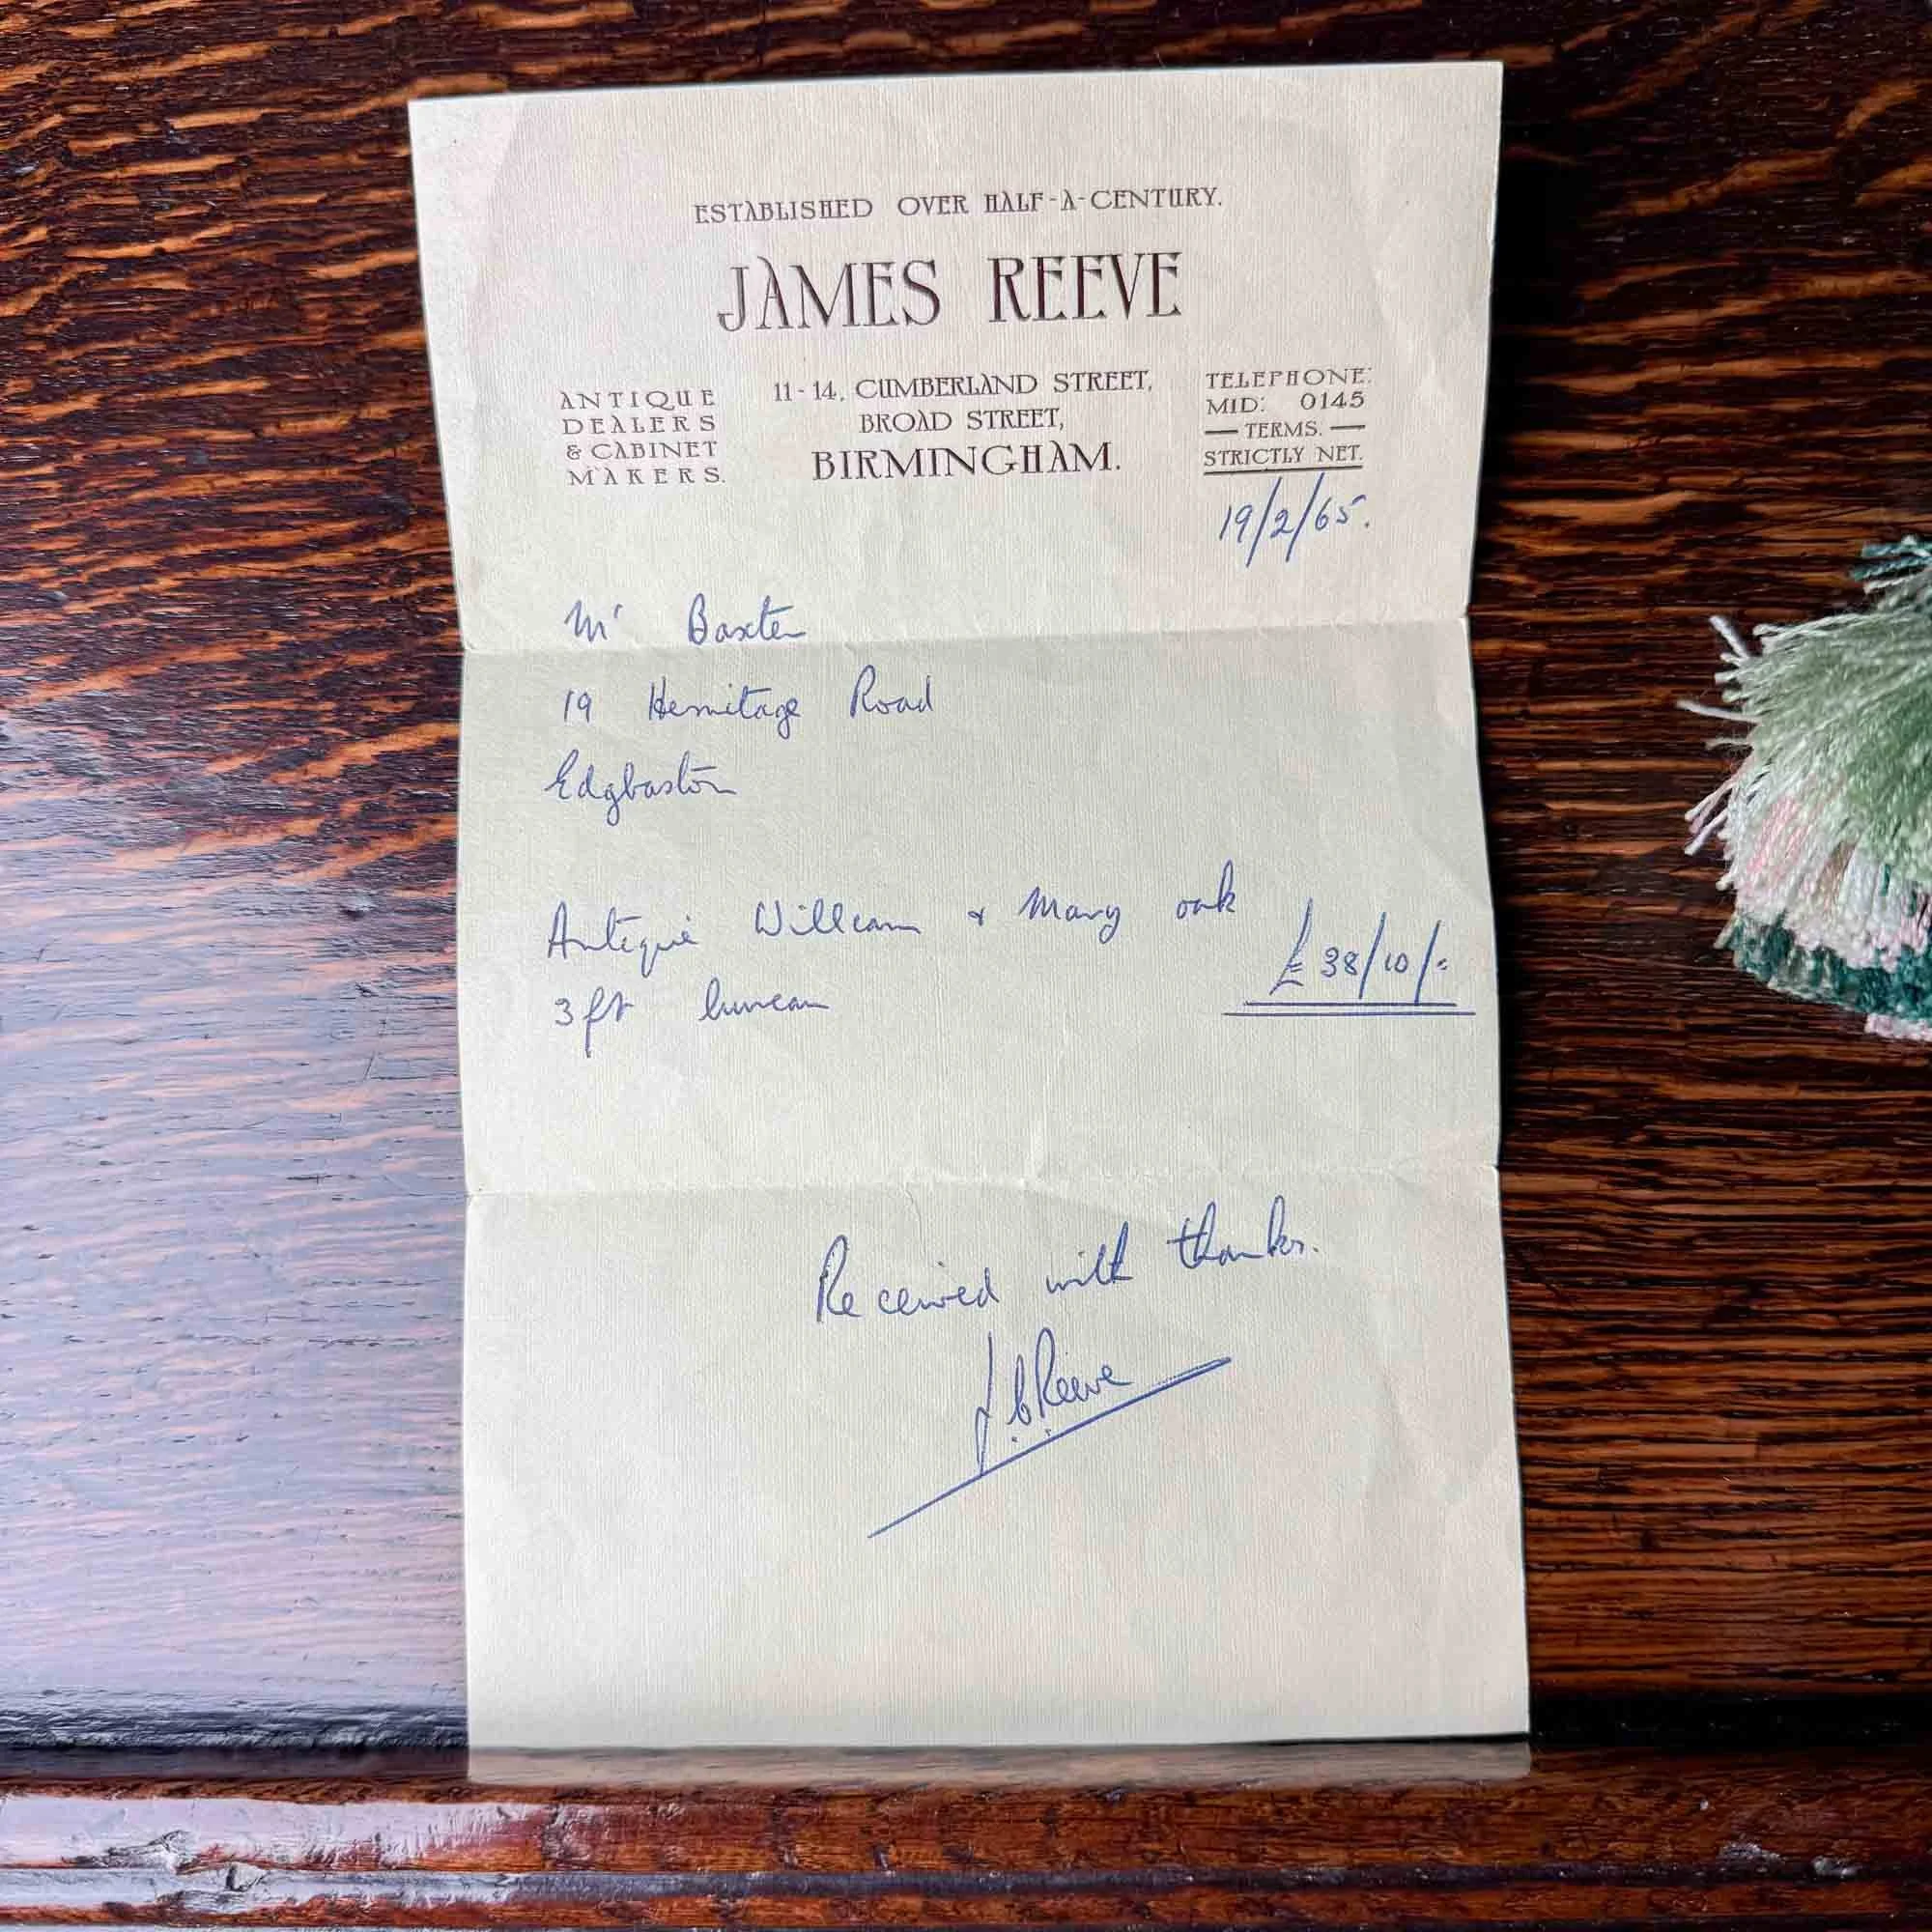 ESTABLISHED OVER HALF-A-CENTURY.
JAMES REEVE
ANTIQUE
DEALERS
& CABINET
MAKERS.
11-14, CUMBERLAND STREET,
BROAD STREET,
BIRMINGHAM.
TELEPHONE:
MID: 0145
— TERMS. —
STRICTLY NET.
19/2/65.
Mr Baxter
19 Hermitage Road
Edgbaston
Antique William & Mary oak £38/10/-
3ft bureau
Received with thanks.
J.C.Reeve